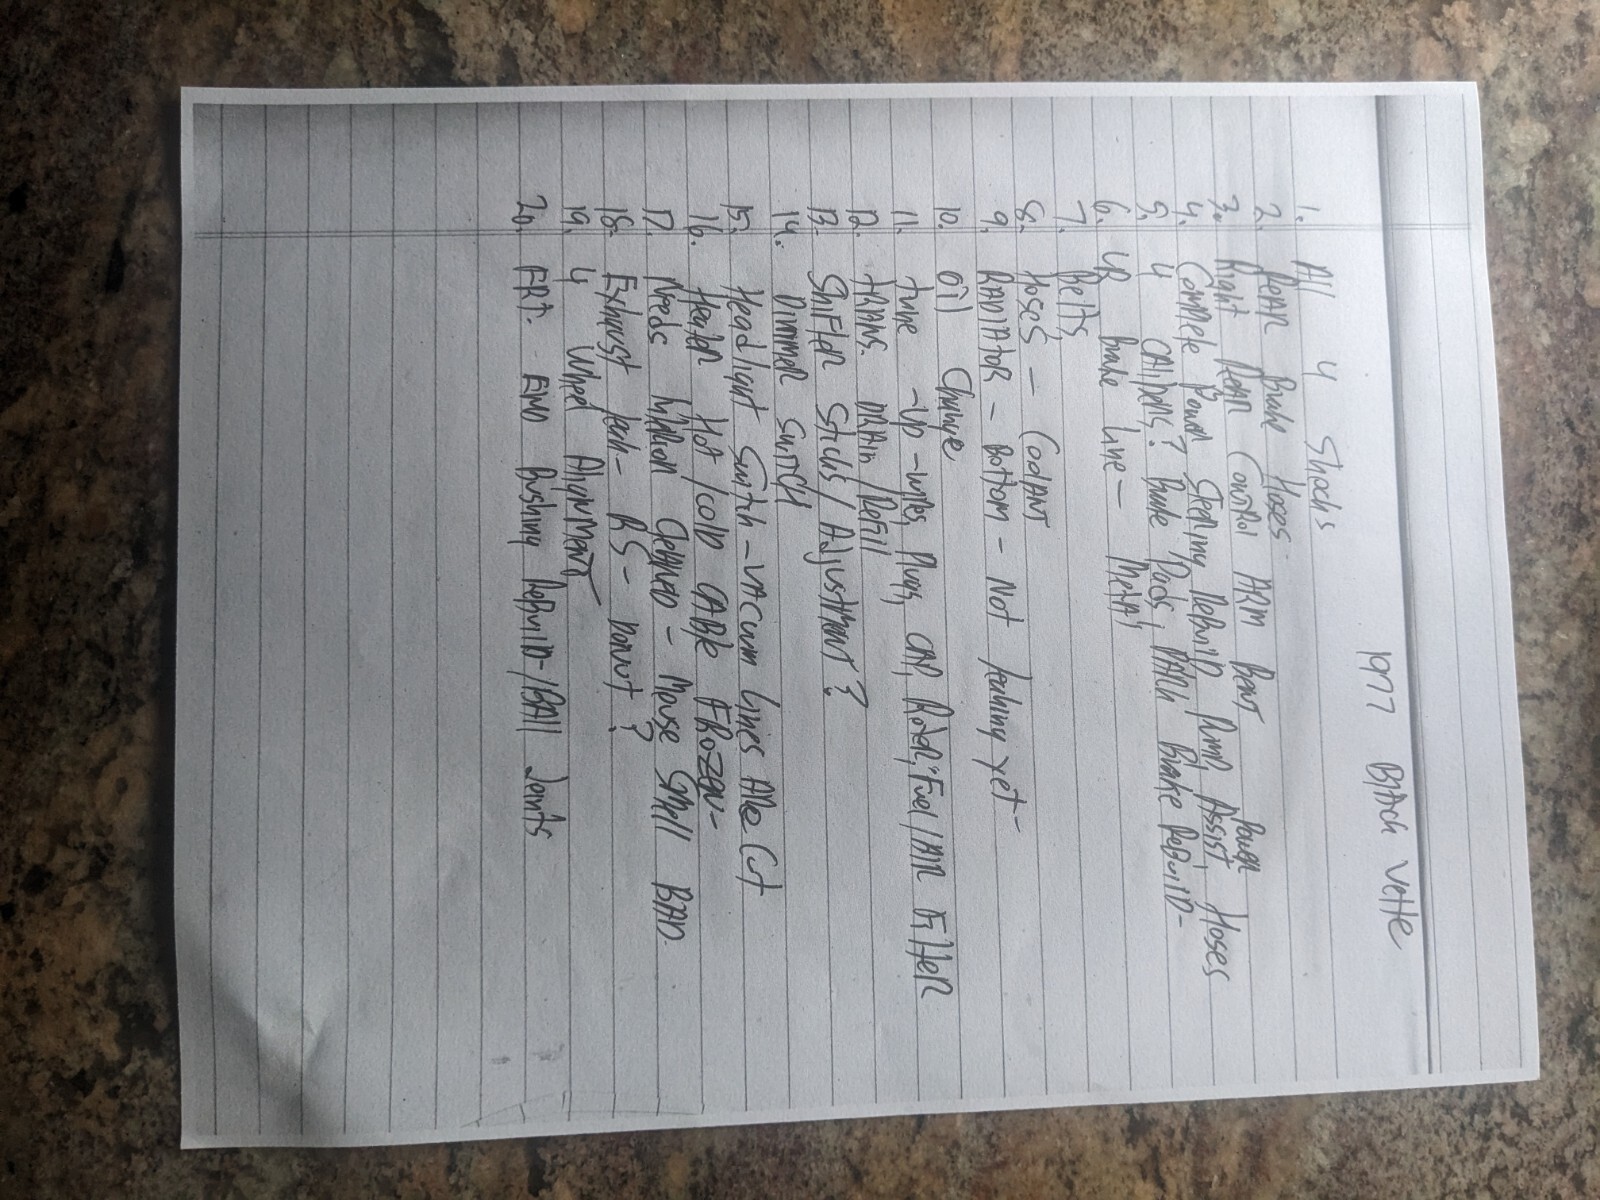 1977 Black Vette
1. All 4 Shocks
2. Rear Brake Hoses.
3. Right Rear Control Arm Bent
4. Complete Power Steering Rebuild Pump, Power Assist, Hoses
5. 4 Calipers? Brake Pads, Park Brake Rebuild-
6. LR Brake Line - Metal
7. Belts
8. Hoses - Coolant
9. Radiator - Bottom - Not leaking yet-
10. Oil Change
11. Tune-up-wires, Plugs, Cap, Rotor, Fuel/Air Filter
12. Trans. Drain/Refill
13. Shifter Sticks/Adjustment?
14. Dimmer Switch
15. Headlight Switch-Vacuum lines Are Cut
16. Heater Hot/Cold Cable Frozen-
17. Needs Interior Cleaned-Mouse Smell BAD.
18. Exhaust leak- RS- Donut?
19. 4 Wheel Alignment
20. FRT. END Bushing Rebuild-/Ball Joints